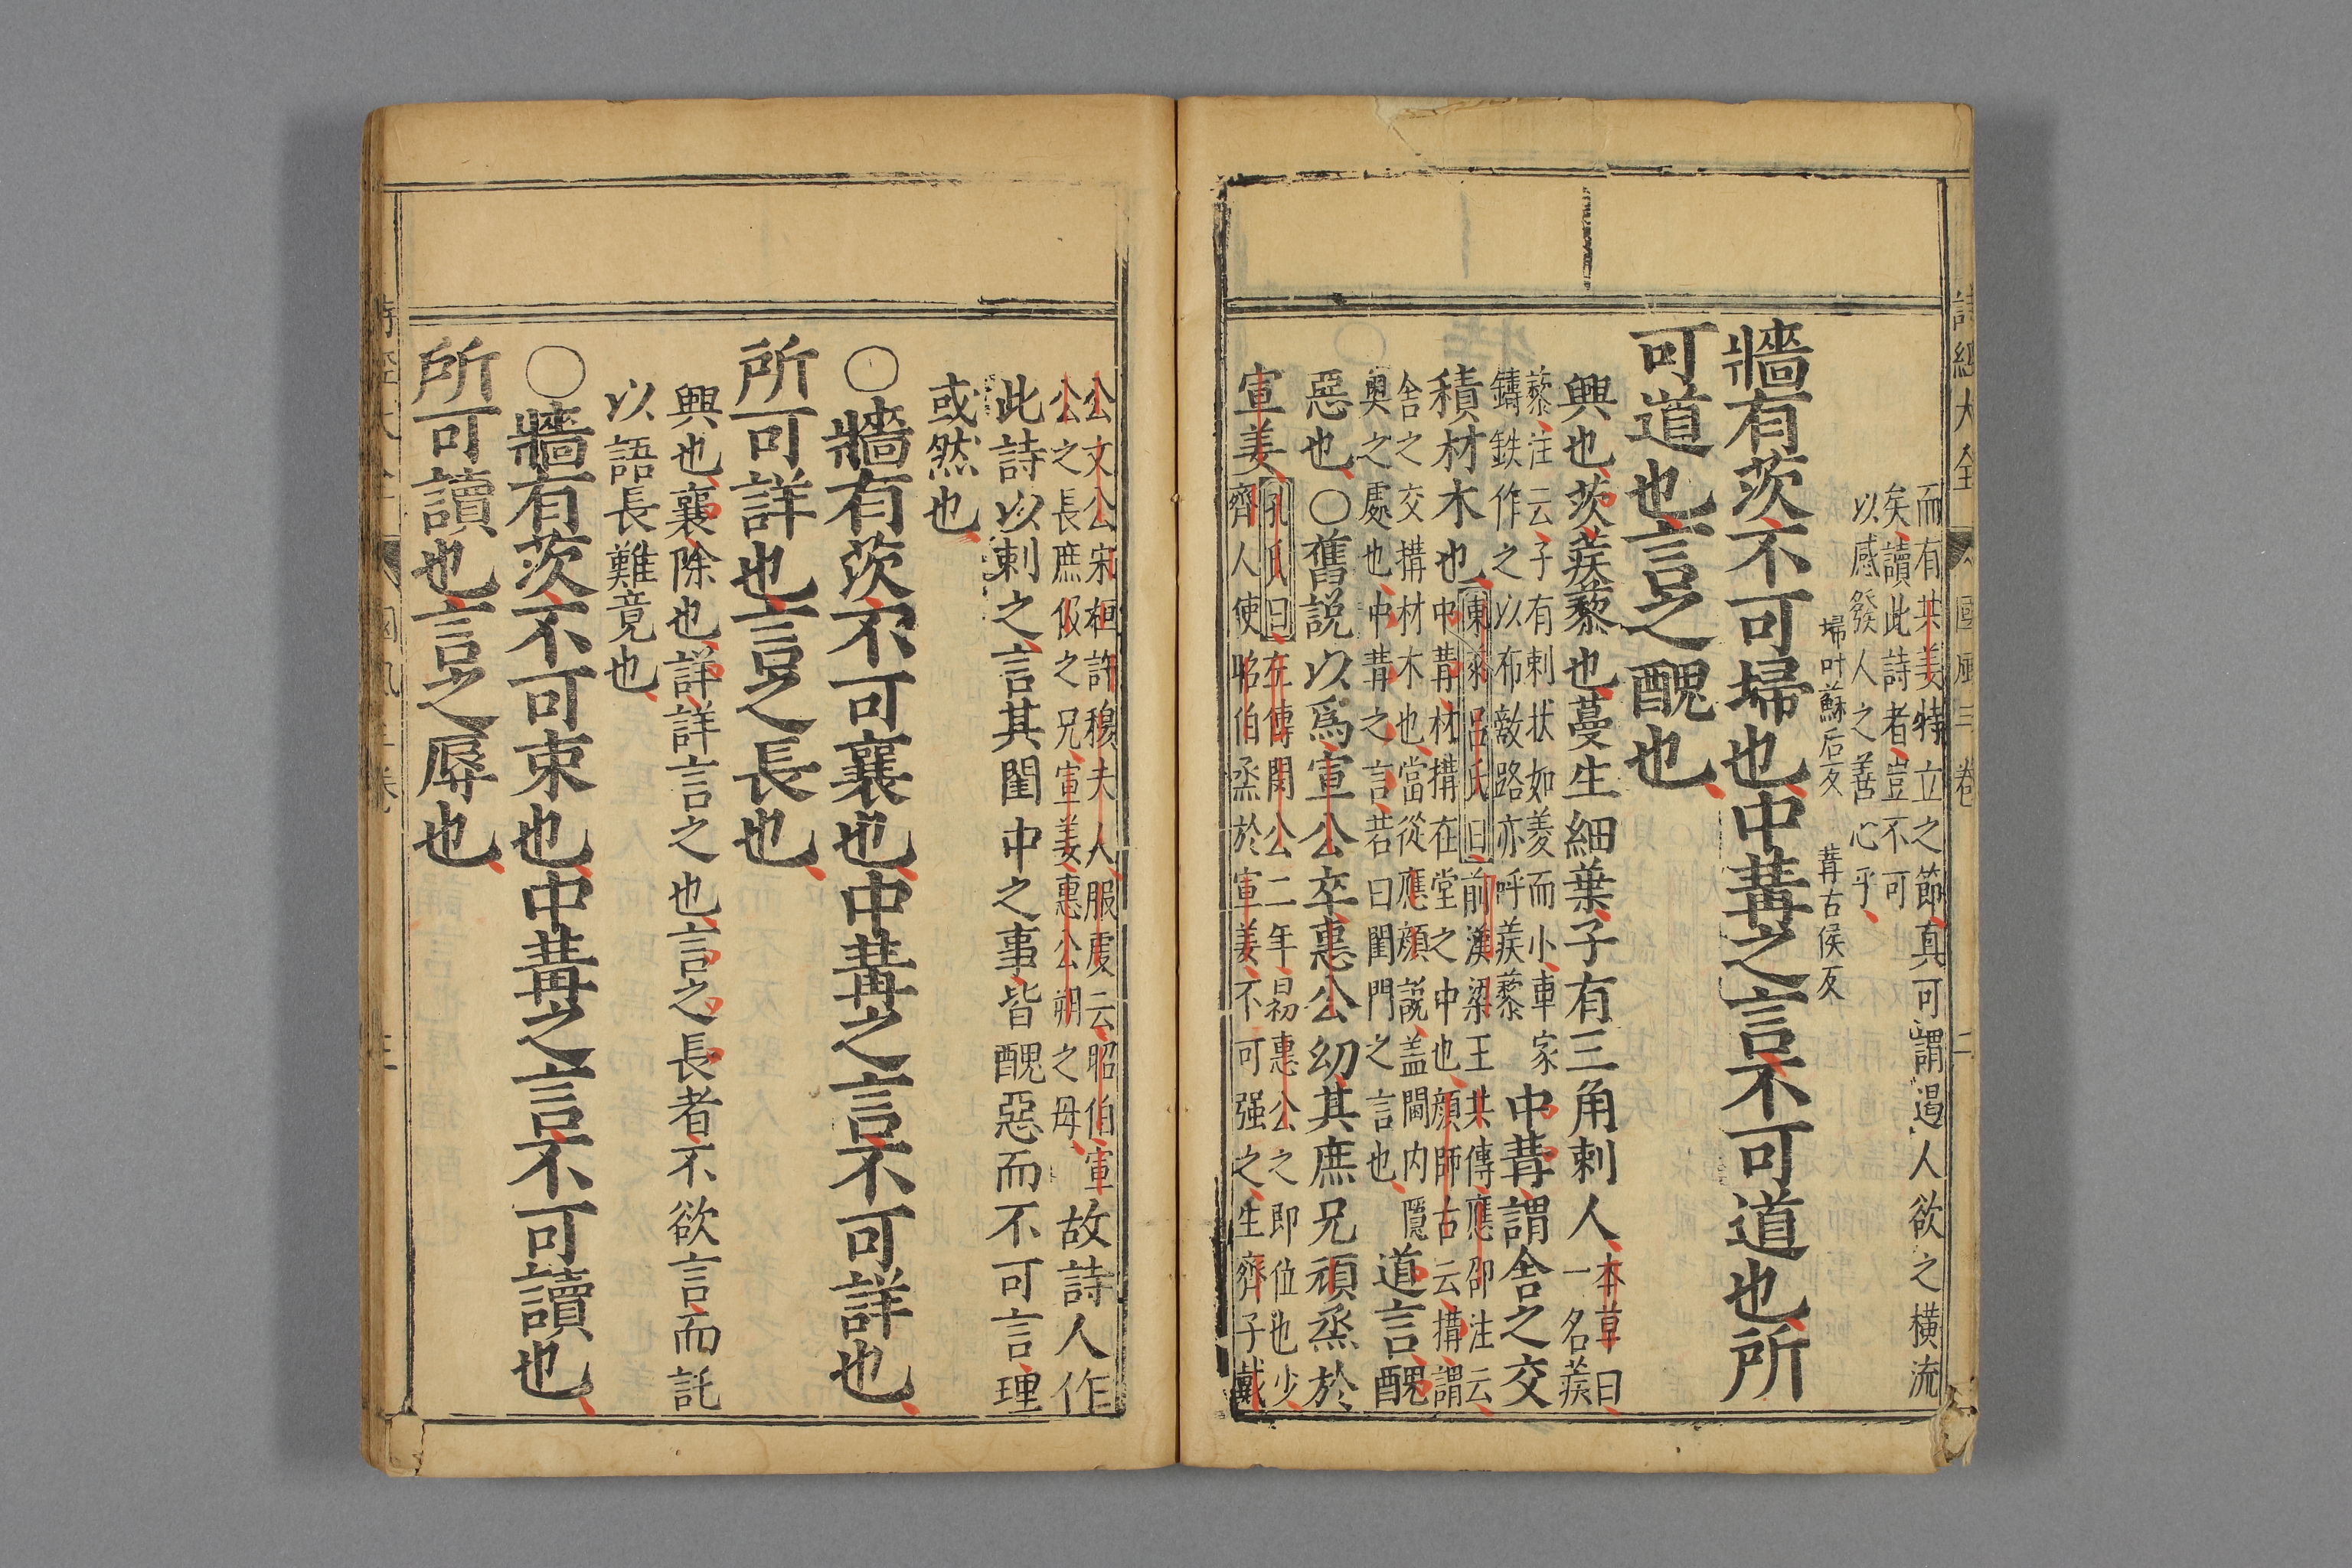 詩經大全 國風三卷 二
而有共姜特立之節真可謂遏人欲之橫流
矣讀此詩者豈不可
以感發人之善心乎
埽叶蘇后反 冓古侯反
牆有茨不可埽也中冓之言不可道也所
可道也言之醜也
興也茨蒺藜也蔓生細葉子有三角刺人
本草曰
一名蒺
藜注云子有刺状如菱而小車家
鑄鉄作之以布敵路亦呼蒺藜
中冓謂舍之交
積材木也
東萊呂氏曰前漢梁王共傳應卲注云
中冓材構在堂之中也顔師古云構謂
舍之交搆材木也當從應顔説盖閫内隱
奧之處也中冓之言若曰閨門之言也
道言醜
惡也○舊説以爲宣公卒惠公幼其庶兄頑烝於
宣姜
孔氏曰左傳閔公二年初惠公之即位也少
齊人使昭伯烝於宣姜不可强之生齊子戴
公文公宋桓許穆夫人服虔云昭伯宣
公之長庶伋之兄宣姜惠公朔之母
故詩人作
此詩以刺之言其閨中之事皆醜惡而不可言理
或然也
○牆有茨不可襄也中冓之言不可詳也
所可詳也言之長也
興也襄除也詳詳言之也言之長者不欲言而託
以語長難竟也
○牆有茨不可束也中冓之言不可讀也
所可讀也言之辱也